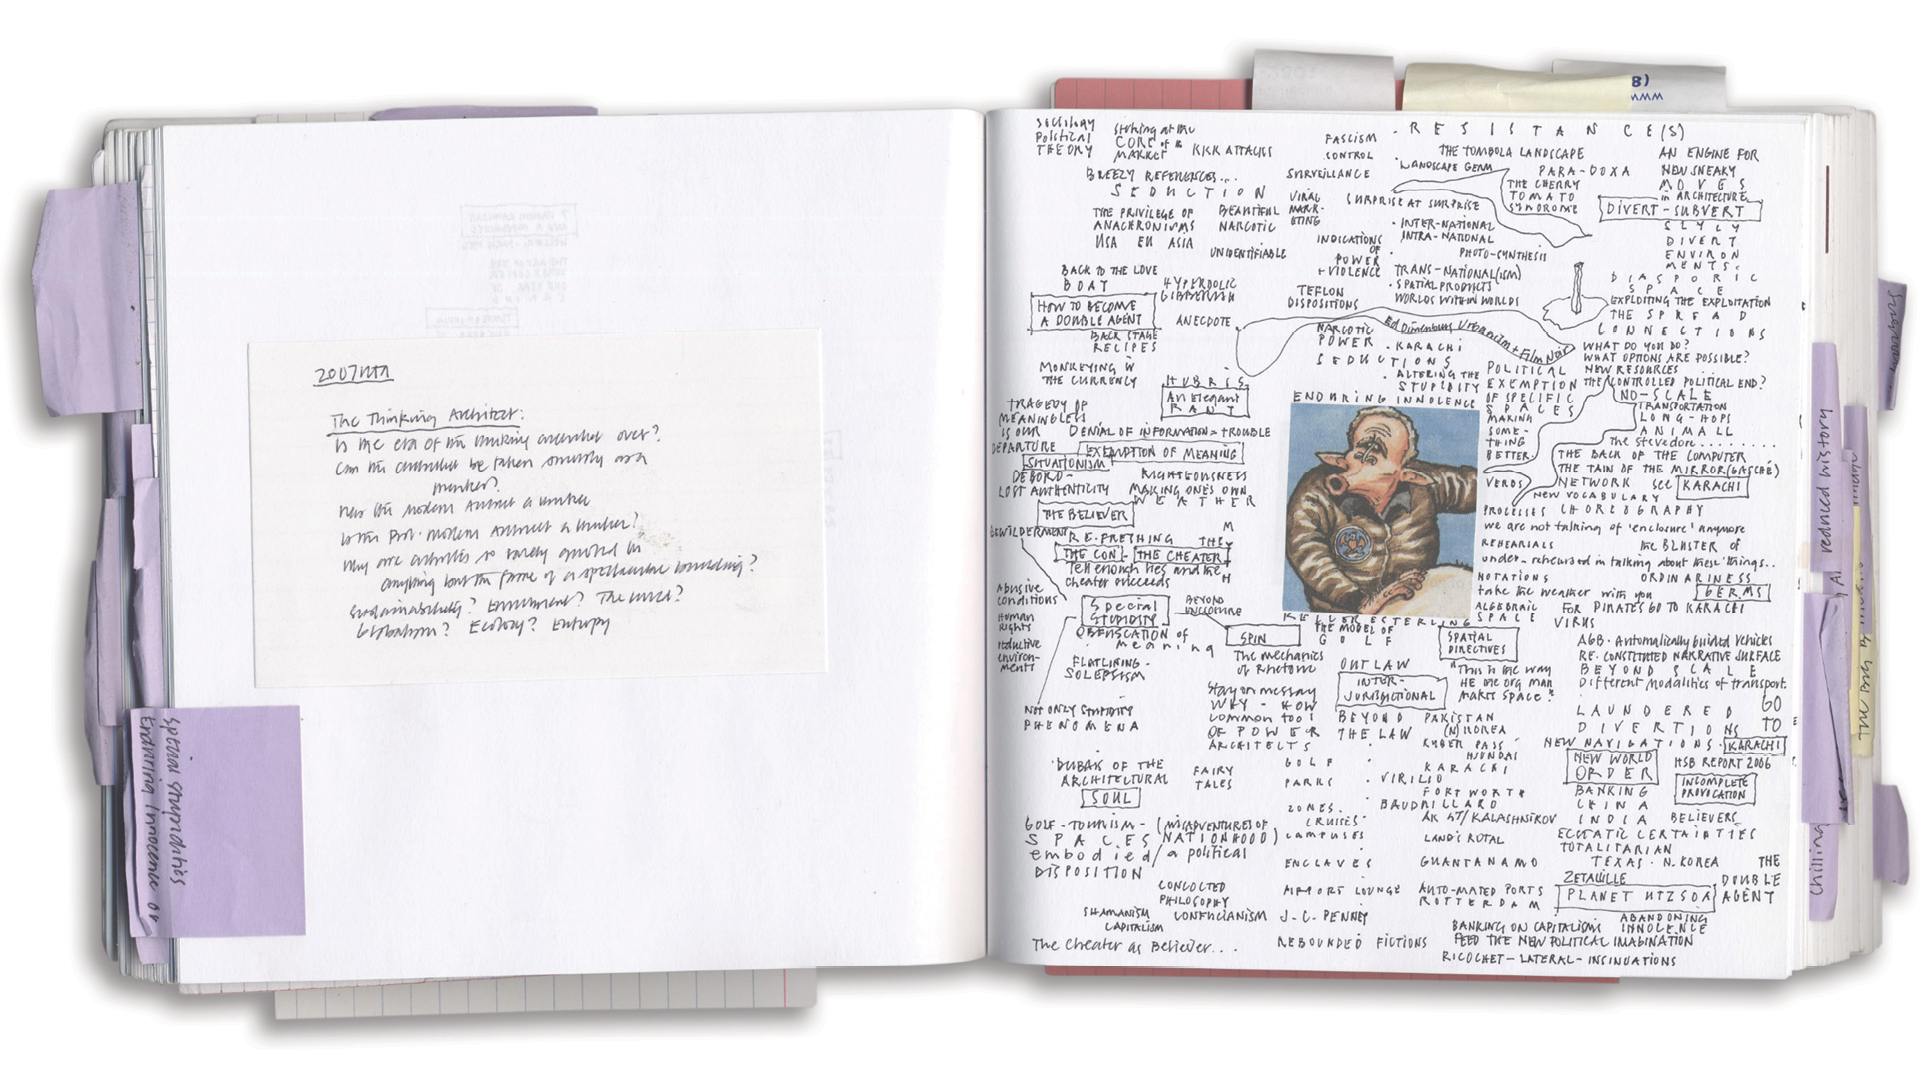 The Thinking Architect:
Is the era of the thinking architect over?
Can the architect be taken seriously as a
thinker?
Was the modern architect a thinker
Is the Post-modern architect a thinker?
Why are architects so rarely quoted in
anything but the frame of a spectacular building?
Sustainability? Environment? The
Globalism? Ecology? Entropy
Special stupidities
Enduring Innocence or
POLITICAL
THEORY
Striking at the
CORE of the
MARKET
KICK ATTACKS
BREEZY REFERENCES...
SEDUCTION
THE PRIVILEGE OF
ANACHRONISMS
USA EU ASIA
BEAUTIFUL
NARCOTIC
UNIDENTIFIABLE
BACK TO THE LOVE
BOAT
HYPERBOLIC
GIBBERISH
HOW TO BECOME
A DOUBLE AGENT
ANECDOTE
BACK STAGE
RECIPES
MONKEYING W
THE CURRENCY
HUBRIS
An Elegant
RANT
TRAGEDY OF
MEANINGLESS
IS OUR
DEPARTURE
DENIAL OF INFORMATION = TROUBLE
EXEMPTION OF MEANING
SITUATIONISM
DEBORD -
RIGHTEOUSNESS
LOST AUTHENTICITY
MAKING ONES OWN
WEATHER
THE BELIEVER
BEWILDERMENT
THE CON - THE CHEATER
Tell enough lies and the
cheater succeeds
Abusive
conditions
Human
Rights
Special
STUPIDITY
BEYOND
OBFUSCATION of
meaning
FLATLINING -
SOLEPSISM
NOT ONLY STUPIDITY
PHENOMENA
DUBAIS OF THE
ARCHITECTURAL
SOUL
FAIRY
TALES
GOLF - TOURISM - (MISADVENTURES OF
SPACES NATIONHOOD)
embodied / a political
DISPOSITION
CONCOCTED
PHILOSOPHY
SHAMANISM
CONFUCIANISM
CAPITALISM
The Cheater as Believer...
RESISTANCE(S)
FASCISM
CONTROL
SURVEILLANCE
THE TOMBOLA LANDSCAPE
LANDSCAPE GERM
PARA-DOXA
THE CHERRY
TOMATO
SYNDROME
AN ENGINE FOR
NEW SNEAKY
MOVES
in ARCHITECTURE
DIVERT-SUBVERT
SLYLY
DIVERT
ENVIRON
MENTS.
VIRAL
MARK-
ETING
SURPRISE AT SURPRISE
INTER-NATIONAL
INTRA-NATIONAL
PHOTO-SYNTHESIS
INDICATIONS
OF
POWER
+ VIOLENCE
TRANS-NATIONAL(ISM)
SPATIAL PRODUCTS
WORLDS WITHIN WORLDS
TEFLON
DISPOSITIONS
DIASPORIC
SPACE
EXPLOITING THE EXPLOITATION
THE SPREAD
CONNECTIONS
Ed Dimenburg Urbanism + Film Noir
NARCOTIC
POWER
KARACHI
SEDUCTIONS
ALTERING THE
STUPIDITY
POLITICAL
EXEMPTION
OF SPECIFIC
SPACES
WHAT DO YOU DO?
WHAT OPTIONS ARE POSSIBLE?
NEW RESOURCES
THE CONTROLLED POLITICAL END?
NO-SCALE
ENDURING INNOCENCE
MAKING
SOME-
THING
BETTER
TRANSPORTATION
LONG-HOPS
ANIMALL
The stevedore.........
THE BACK OF THE COMPUTER
THE TAIN OF THE MIRROR (GASCHÉ)
VERBS
NETWORK SEE KARACHI
NEW VOCABULARY
PROCESSES CHOREOGRAPHY
we are not talking of 'enclosure' anymore
REHEARSALS
the BLUSTER of
under-rehearsed in talking about these things..
NOTATIONS
ORDINARINESS
take the weather with you
GERMS
ALGEBRAIC
SPACE
FOR PIRATES GO TO KARACHI
VIRUS
KELLER ESTERLING
THE MODEL OF
GOLF
SPIN
The mechanics
of Rhetoric
SPATIAL
DIRECTIVES
OUTLAW
INTER-
JURISDICTIONAL
"This is the way
HE the org man
makes space"
Stay on message
WHY - HOW
common tool
OF POWER
ARCHITECTS
BEYOND
THE LAW
PAKISTAN
(N) KOREA
KYBER PASS
HUNDAI
KARACHI
GOLF
PARKS
VIRILIO
FORT WORTH
ZONES.
BAUDRILLARD
CRUISES
AK 47/KALASHNIKOV
CAMPUSES
ENCLAVES
GUANTANAMO
AIRPORT LOUNGE
AUTO-MATED PORTS
ROTTERDAM
J-C. PENNEY
REBOUNDED FICTIONS
AGB. Automatically Guided Vehicles
RE-CONSTITUTED NARRATIVE SURFACE
BEYOND SCALE
Different modalities of transport.
LAUNDERED
DIVERTIONS
GO
TO
KARACHI
NEW NAVIGATIONS
NEW WORLD
ORDER
HSB REPORT 2006
INCOMPLETE
PROVOCATION
BANKING
CHINA
INDIA
BELIEVERS
ECSTATIC CERTAINTIES
TOTALITARIAN
TEXAS. N. KOREA
THE
DOUBLE
AGENT
PLANET
ABANDONING
INNOCENCE
BANKING ON CAPITALISMS
FEED THE NEW POLITICAL IMAGINATION
RICOCHET-LATERAL-INSINUATIONS
reduced history
Chilling